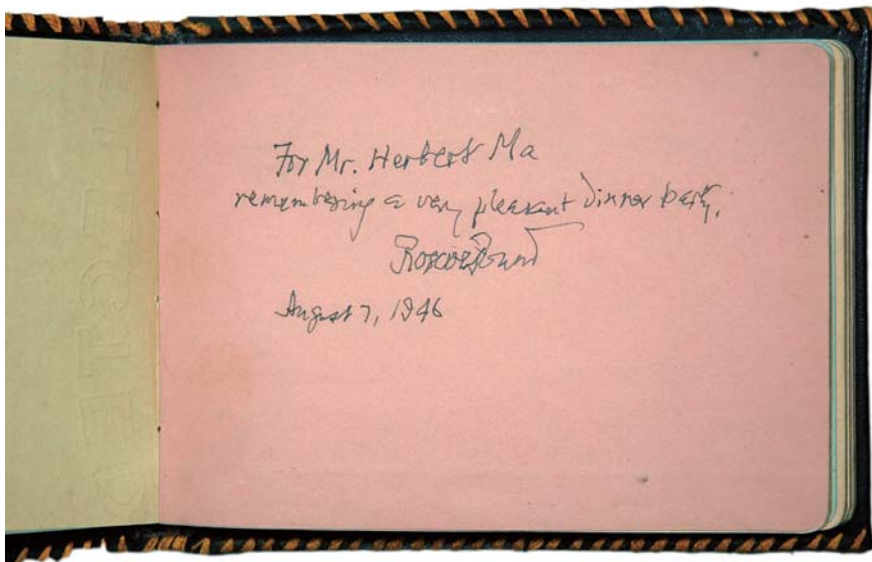 For Mr. Herbert Ma
remembering a very pleasant dinner party.
Roscoe Pound
August 7, 1946